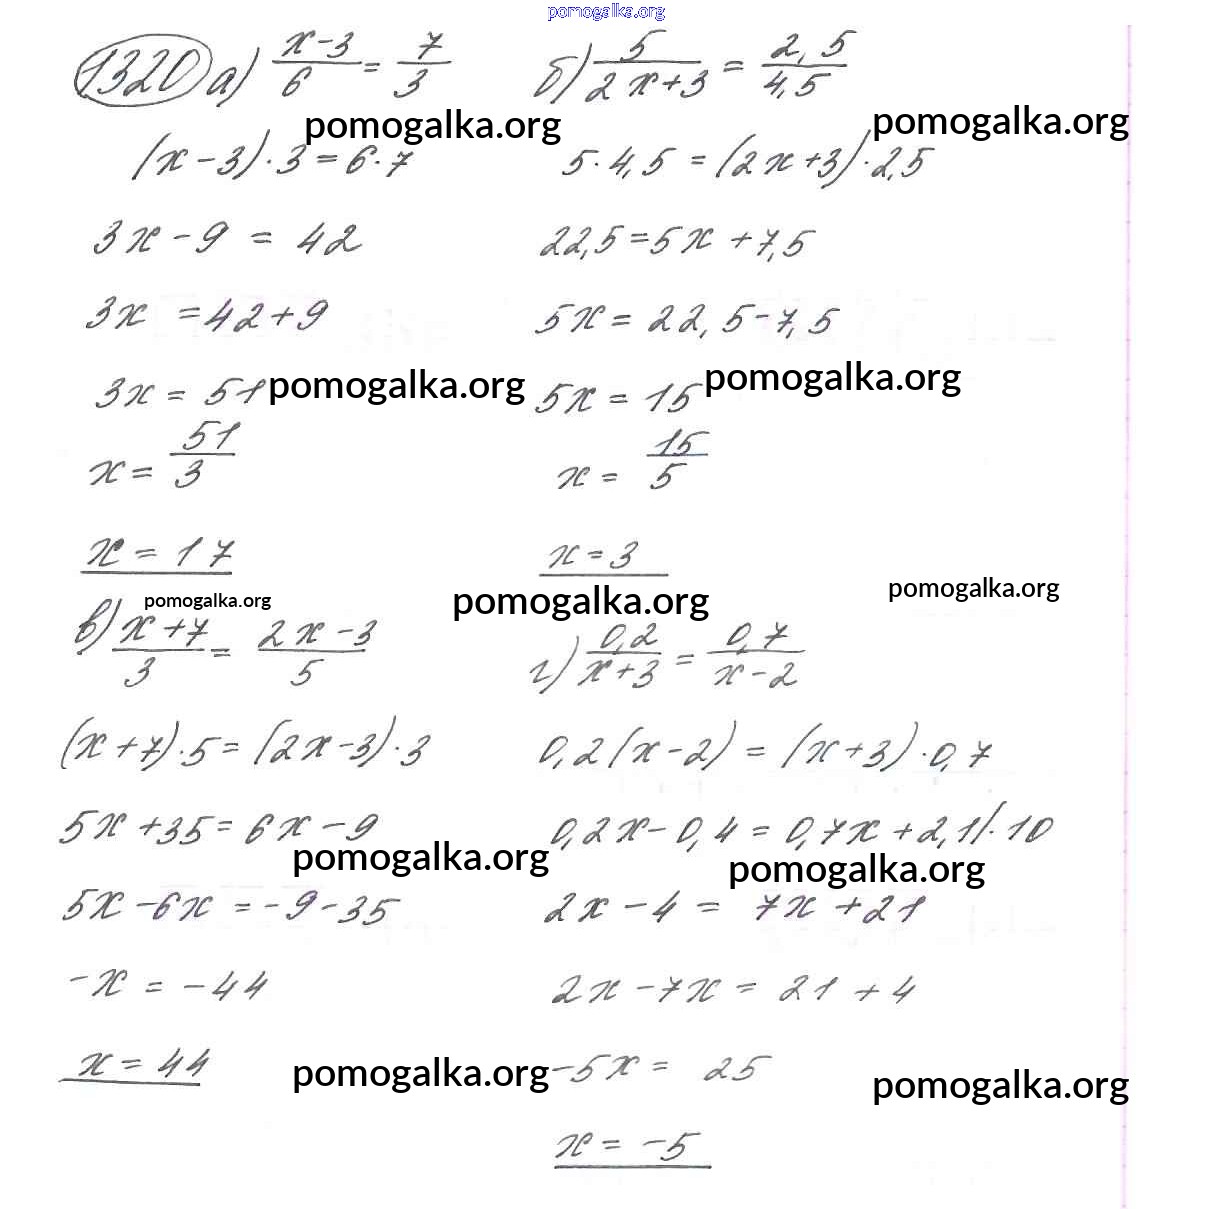 pomogalka.org
1320 а) (x-3)/6 = 7/3
(x-3)·3=6·7
3x-9=42
3x=42+9
3x=51
x=51/3
x=17
б) 5/(2x+3) = 2,5/4,5
5·4,5=(2x+3)·2,5
22,5=5x+7,5
5x=22,5-7,5
5x=15
x=15/5
x=3
в) (x+7)/3 = (2x-3)/5
(x+7)·5=(2x-3)·3
5x+35=6x-9
5x-6x=-9-35
-x=-44
x=44
г) 0,2/(x+3) = 0,7/(x-2)
0,2(x-2)=(x+3)·0,7
0,2x-0,4=0,7x+2,1/·10
2x-4=7x+21
2x-7x=21+4
-5x=25
x=-5
pomogalka.org
pomogalka.org
pomogalka.org
pomogalka.org
pomogalka.org
pomogalka.org
pomogalka.org
pomogalka.org
pomogalka.org
pomogalka.org
pomogalka.org